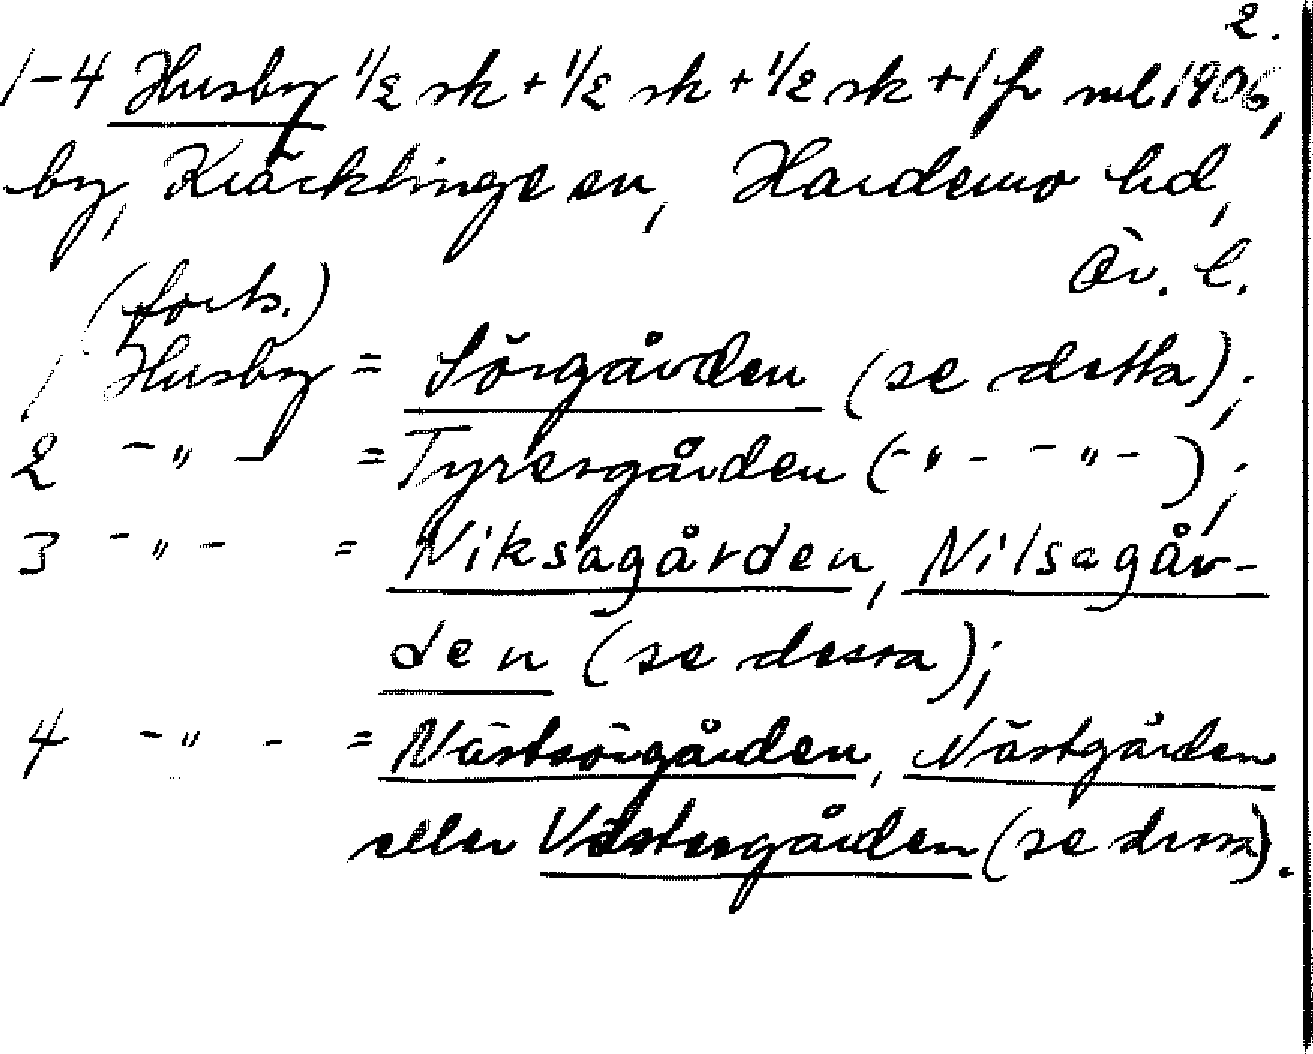 2.
1-4 Husby 1/2 sk + 1/2 sk + 1/2 sk + 1 fr ml 1906,
by, Kräcklinge sn, Hardemo hd,
Ör. l.
(forts.)
1 Husby = Sörgården (se detta);
2 -"- = Tyresgården (-"- -"-);
3 -"- = Niksagården, Nilsagår-
den (se dessa);
4 -"- = Nästsörgården, Nästgården
eller Västergården (se dessa).